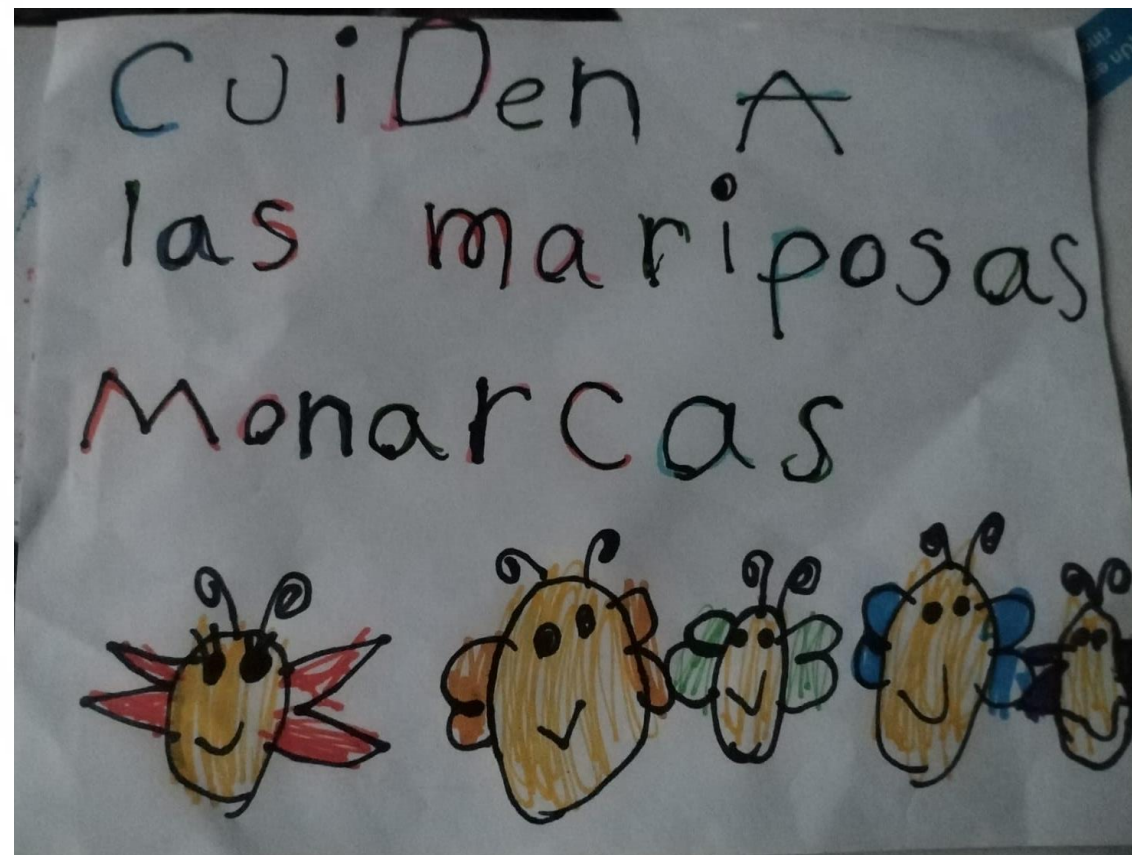 CuiDen A
las mariposas
Monarcas